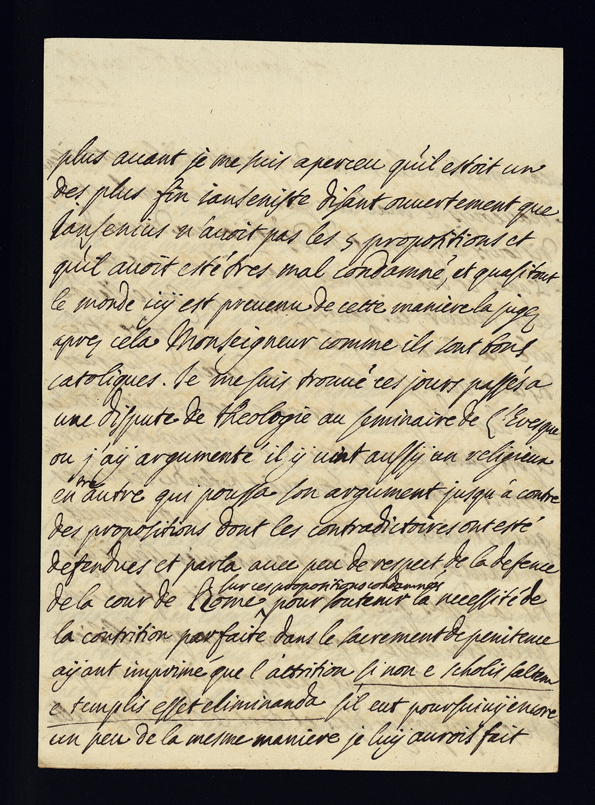 plus auant je me suis aperceu qu'il estoit un
des plus fin ianseniste disant ouvertement que
Jansenius n'auoit pas les 5 propositions et
qu'il auoit esté tres mal condamné, et quasi tout
le monde icÿ est preuenu de cette maniere la juges
apres cela Monseigneur comme ils sont bons
catoliques. Je me suis trouué ces jours passés a
une dispute de theologie au seminaire de L'Euesque
ou j'aÿ argumenté il ÿ uint aussÿ un religieux
en autre qui poussa son argument jusqu'à contre
des propositions dont les contradictoires ont esté
defendues et parla auec peu de respect de la defence
sur ces propositions condamnees
de la cour de Rome pour soutenir la necessité de
la contrition parfaite dans le sacrement de penitence
aÿant imprimé que l'attrition si non e scholis saltem
e templis esset eliminanda s'il eut poursuiuÿ encore
un peu de la mesme maniere je luÿ aurois fait